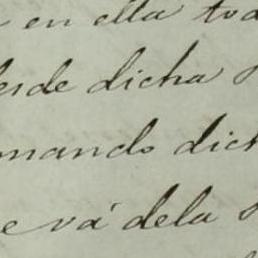 en ella tod
desde dicha
mando dich
e vá dela